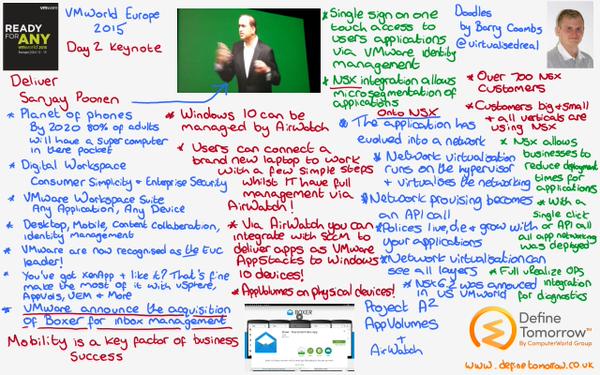 vmware
READY
FOR
ANY
vmworld 2015
VMWorld Europe
2015
Day 2 Keynote
Deliver
Sanjay Poonen
* Planet of phones
By 2020 80% of adults
will have a super computer
in there pocket
* Digital Workspace
Consumer Simplicity + Enterprise Security
* VMware Workspace Suite
Any Application, Any Device
* Desktop, Mobile, Content Collaboration,
identity management
* VMware are now recognised as the EUC
leader!
* You've got XenApp + like it? That's fine
make the most of it with vSphere,
AppVols, UEM & More
* VMware announce the acquisition
of Boxer for inbox management
Mobility is a key factor of business
Success
* Windows 10 can be
managed by AirWatch
* Users can connect a
brand new laptop to work
with a few simple steps
whilst IT have full
management via
AirWatch!
* Via AirWatch you can
integrate with SCCM to
deliver apps as VMware
AppStacks to Windows
10 devices!
* AppVolumes on physical devices!
BOXER
Boxer
Project A²
AppVolumes
+
AirWatch
* Single sign on one
touch access to
users applications
via VMware identity
management
* NSX integration allows
microsegmentation of
applications
Onto NSX
* The application has
evolved into a network
* Network virtualisation
runs on the hypervisor
+ virtualises the networking
* Network provising becomes
an API call
* Polices live, die & grow with
your applications
* Network virtualisation can
see all layers
* NSX 6.2 was annouced
in US VMworld
Doodles
by Barry Coombs
@virtualisedreal
* Over 700 NSX
Customers
* Customers big + small
+ all verticals are
using NSX
* NSX allows
businesses to
reduce deployment
times for
applications
* With a
single click
or API call
all app networking
was deployed
* Full vRealize OPS
integration
for diagnostics
Define
Tomorrow™
By ComputerWorld Group
www.definetomorrow.co.uk